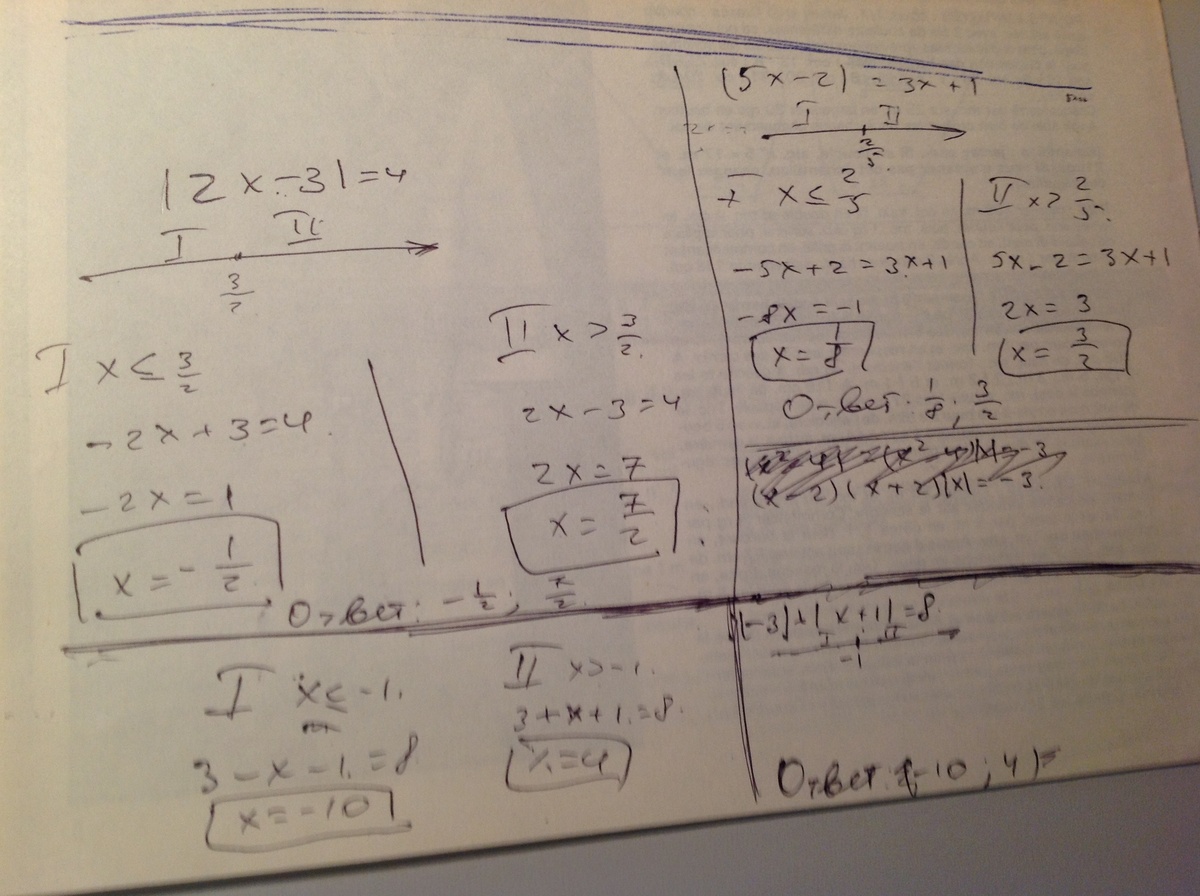 |2x-3|=4
I II
3/2
I x ≤ 3/2
-2x+3=4.
-2x=1
x=-1/2
II x > 3/2.
2x-3=4
2x=7
x=7/2
Ответ: -1/2; 7/2.
(5x-2) = 3x+1
I II
2/5
I x ≤ 2/5
-5x+2=3x+1
-8x=-1
x=1/8
II x > 2/5.
5x-2=3x+1
2x=3
x=3/2
Ответ: 1/8; 3/2
(x-2)(x+2)|x|=-3.
|-3|+|x+1|=8.
I II
-1
I x ≤ -1.
3-x-1.=8
x=-10
II x>-1.
3+x+1.=8.
x=4
Ответ: {-10; 4}